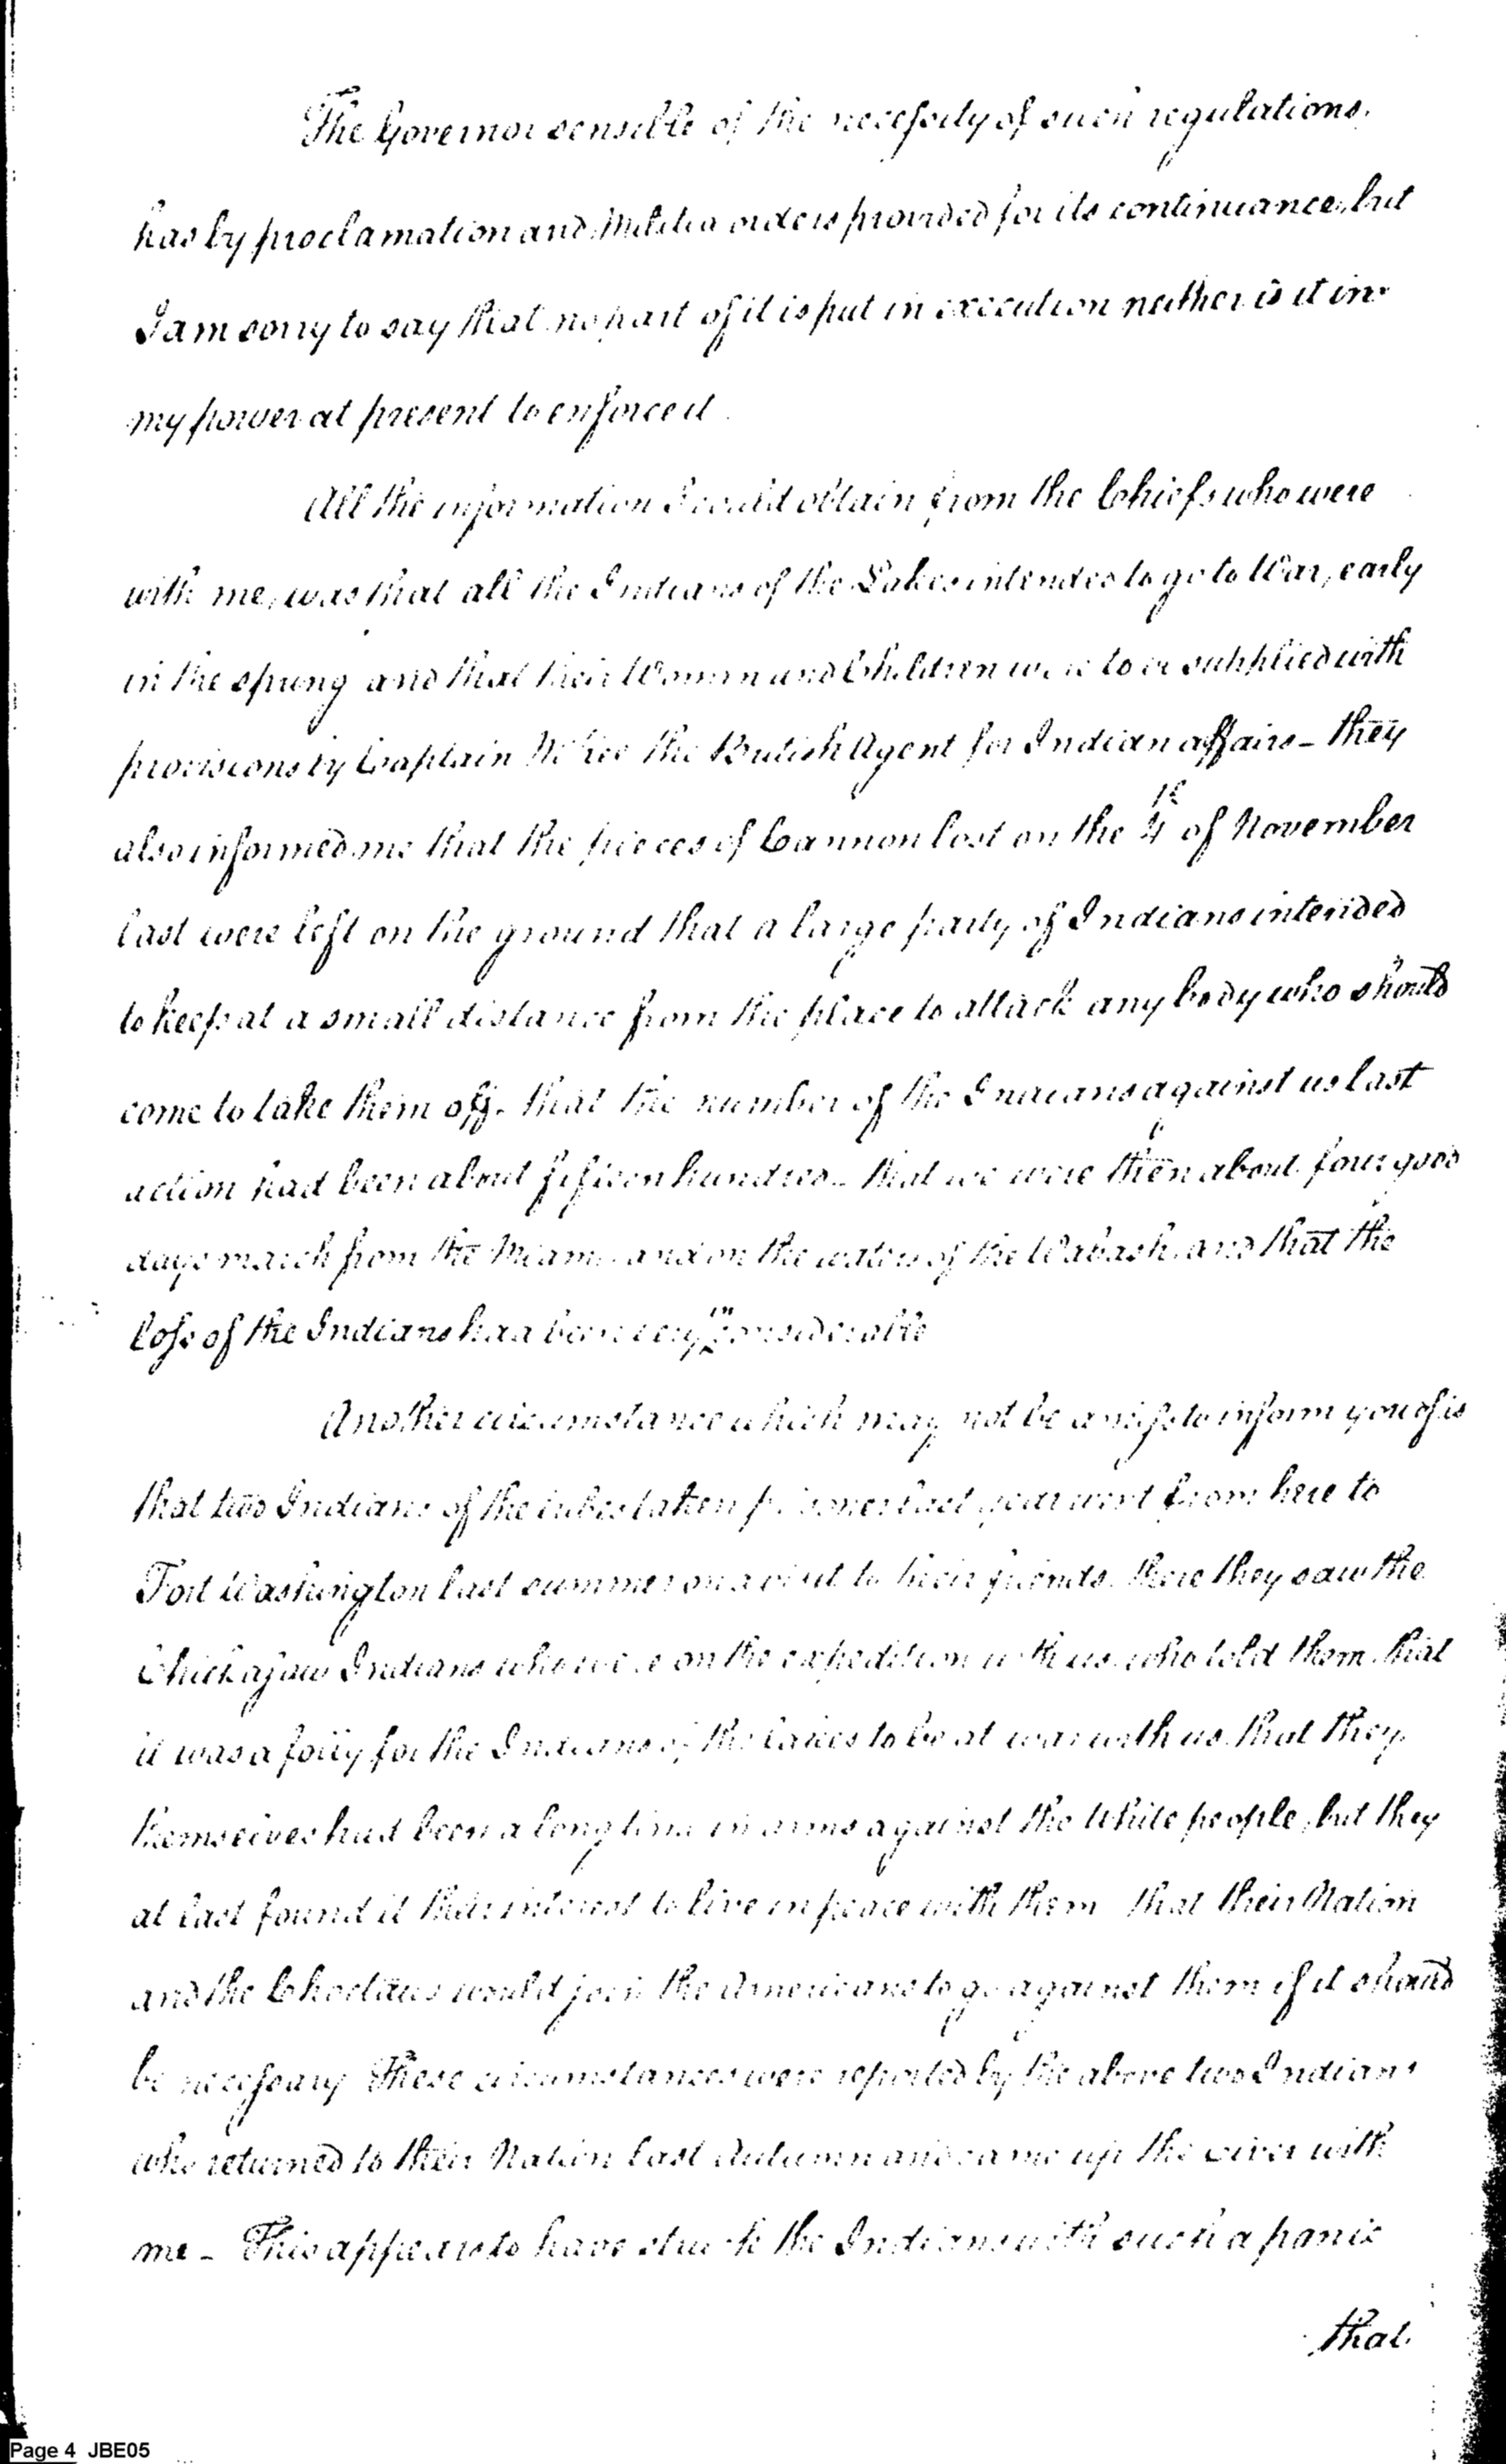 The Governor sensible of the necessity of such regulations,
has by proclamation and Militia orders provided for its continuance, but
I am sorry to say that no part of it is put in execution neither is it in
my power at present to enforce it.
All the information I could obtain from the Chiefs who were
with me, was that all the Indians of the Lakes intended to go to War, early
in the spring and that their Women and Children were to be supplied with
provisions by Captain the British Agent for Indian affairs - they
also informed me that the pieces of Cannon lost on the 4th of November
last were left on the ground that a large party of Indians intended
to keep at a small distance from the place to attack any body who should
come to take them off. that the number of the Indians against us last
action had been about fifteen hundred - that we were then about four good
days march from the Miami and on the waters of the Wabash, and that the
loss of the Indians had been very inconsiderable
Another circumstance which may not be amiss to inform you of is
that two Indians of the taken prisoner last year went from here to
Fort Washington last summer on a visit to their friends. there they saw the
Chickasaw Indians who were on the expedition with us. who told them that
it was a folly for the Indians of the lakes to be at war with us. that they
themselves had been a long time in arms against the White people, but they
at last found it their interest to live in peace with them that their Nation
and the Choctaws would join the Americans to go against them if it should
be necessary These circumstances were reported by the above two Indians
who returned to their Nation last Autumn and came up the river with
me - This appears to have struck the Indians with such a panic
that
Page 4 JBE05